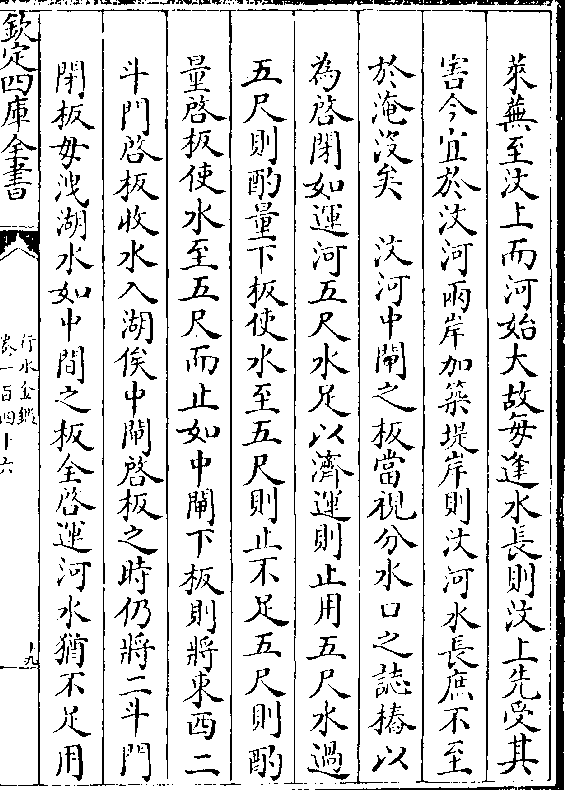 萊蕪至汶上而河始大故每逢水長則汶上先受其
害今宜於汶河兩岸加築堤岸則汶河水長庶不至
於淹沒矣　汶河中閘之板當視分水口之誌樁以
為啓閉如運河五尺水足以濟運則止用五尺水過
五尺則酌量下板使水至五尺則止不足五尺則酌
量啓板使水至五尺而止如中閘下板則將東西二
斗門啓板收水入湖俟中閘啓板之時仍將二斗門
閉板毋洩湖水如中間之板全啓運河水猶不足用
欽定四庫全書
行水金鑑
卷一百四十六
十九